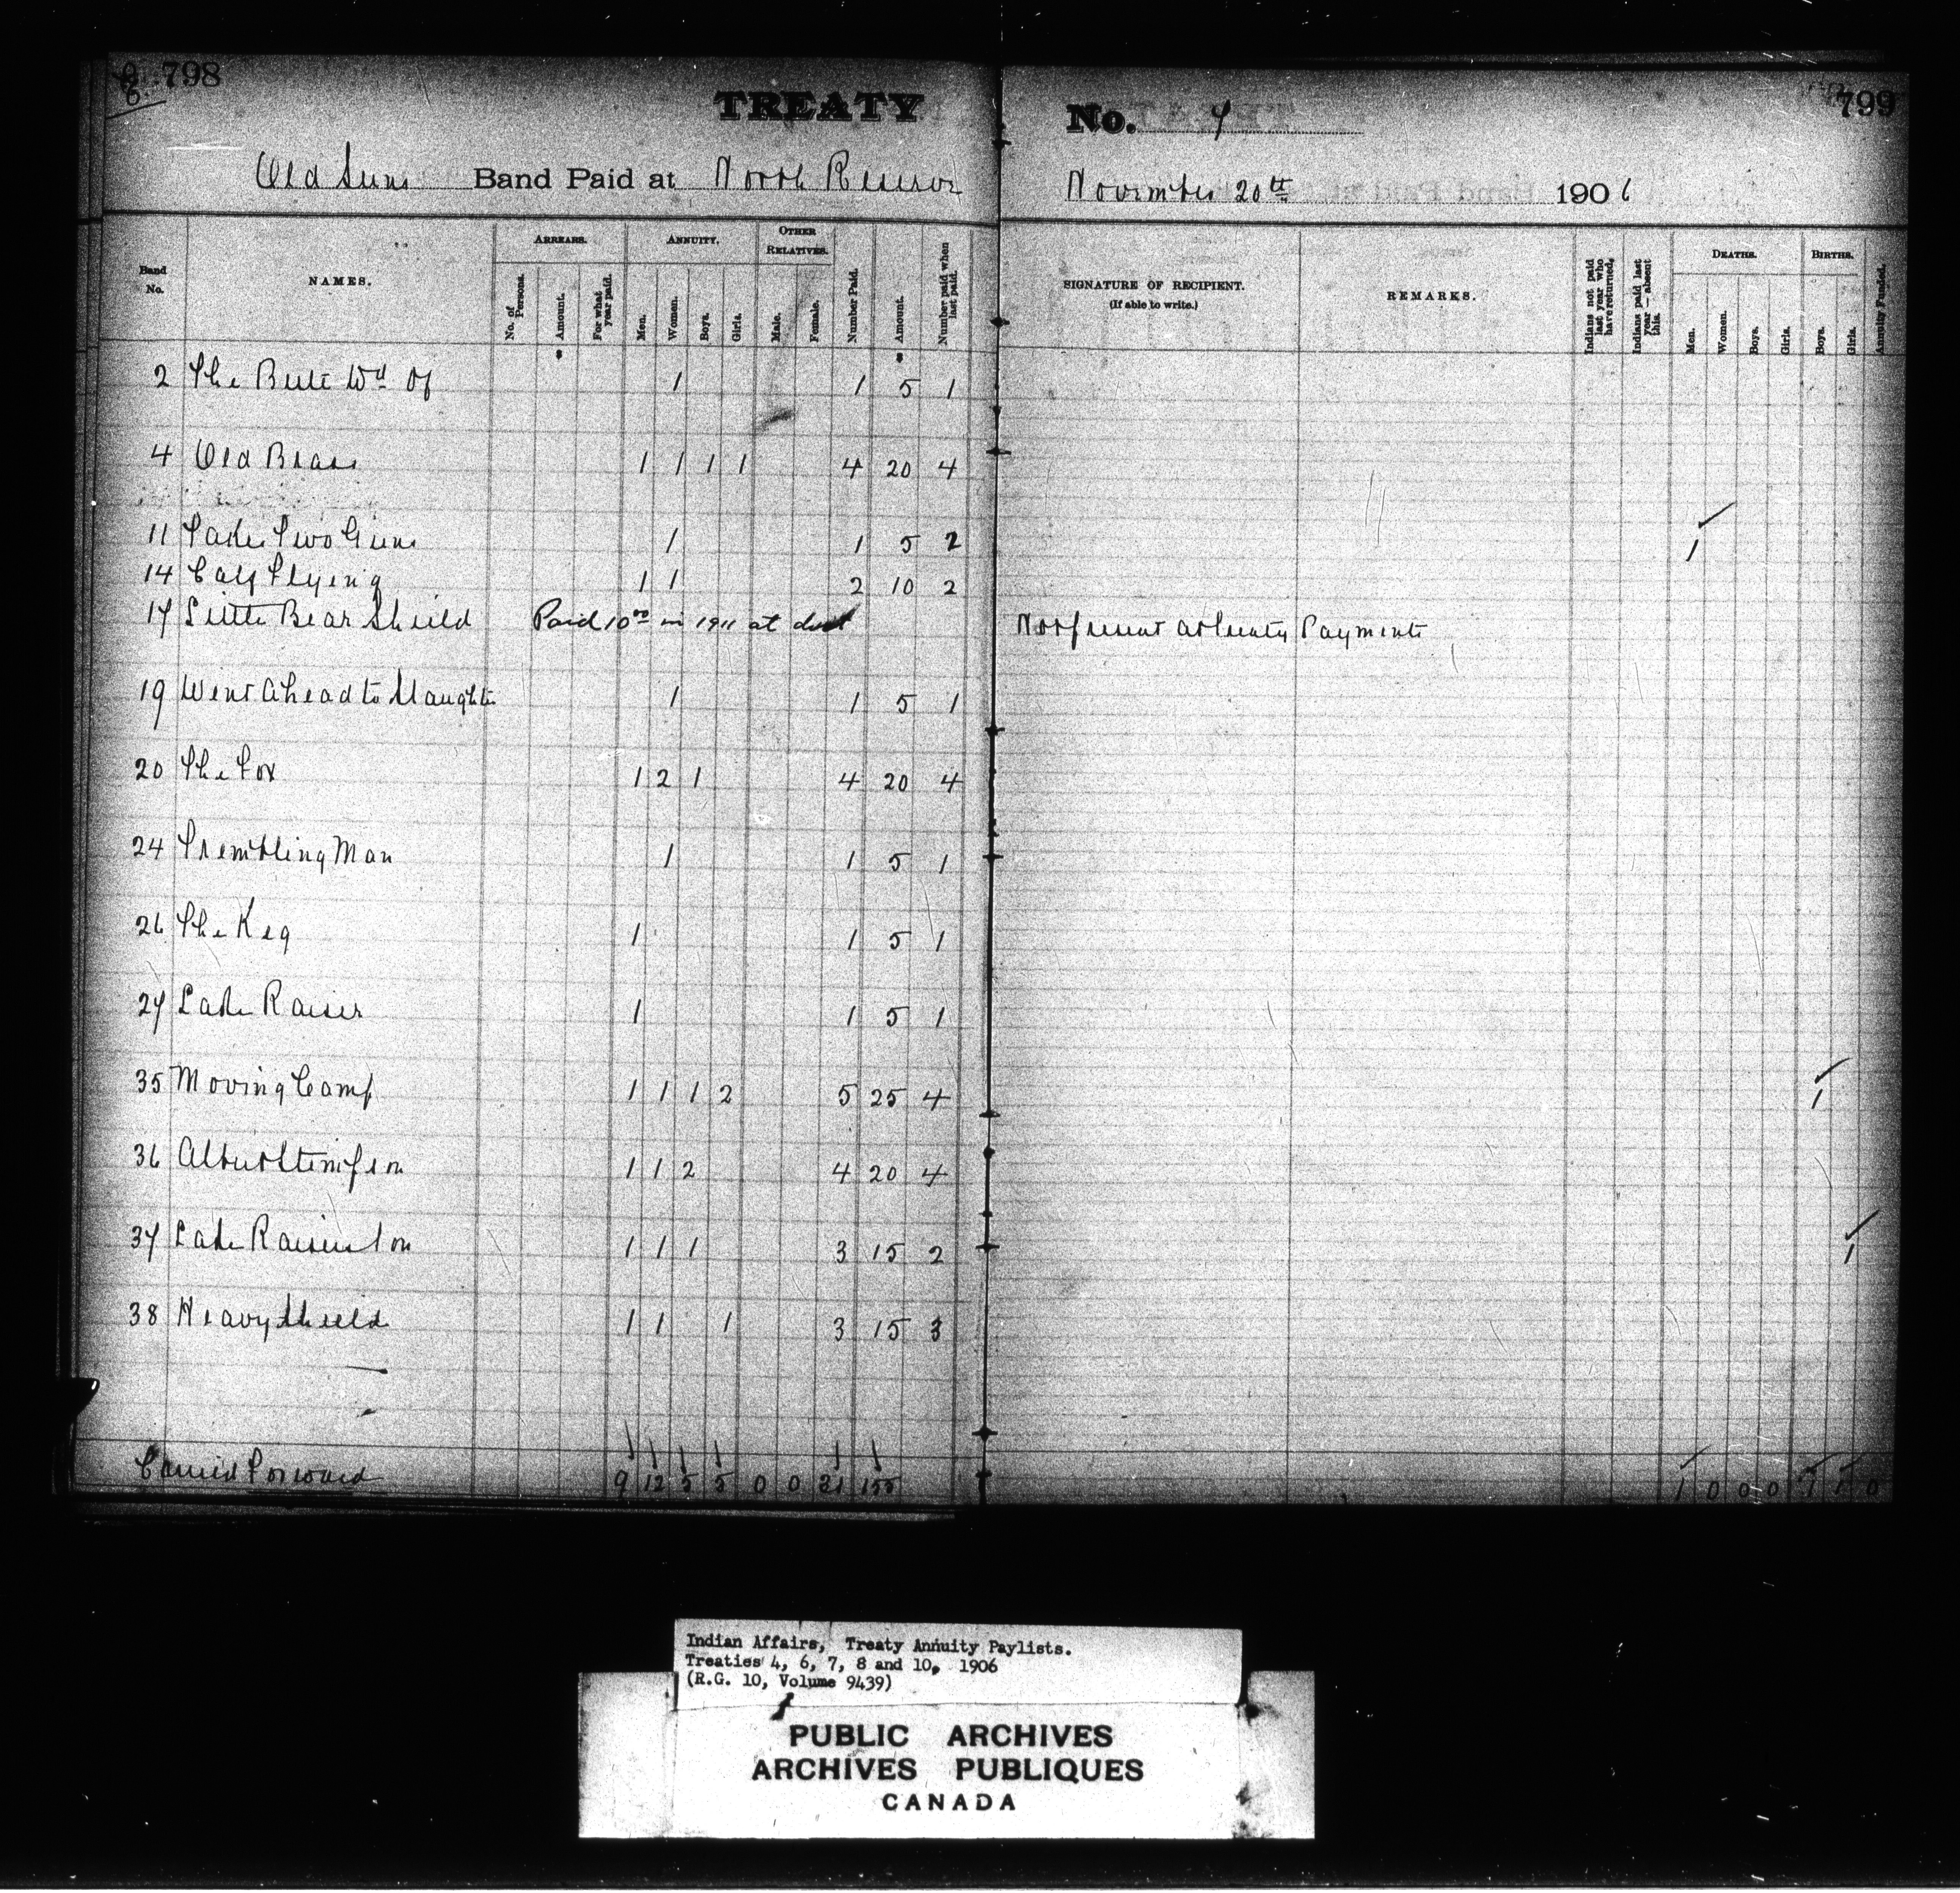 798
TREATY No. 7
799
Old Suns Band Paid at North Reserve November 20th 1906
Band No. NAMES. ARREARS. ANNUITY. OTHER RELATIVES. Number Paid. Amount. Number paid when last paid. SIGNATURE OF RECIPIENT. (If able to write.) REMARKS. Indians not paid last year who have returned. Indians paid last year—absent this. DEATHS. BIRTHS. Annuity Funded.
No. of Persons. Amount. For what year paid. Men. Women. Boys. Girls. Male. Female. Men. Women. Boys. Girls. Boys. Girls.
2 The Bull Wd Of 1 1 5 1
4 Old Brass 1 1 1 1 4 20 4
11 Takes Two Guns 1 1 5 2 1
14 Calf Flying 1 1 2 10 2
17 Little Bear Shield Paid 10 00 in 1911 at Not present at Treaty Payments
19 Went Ahead to Slaughter 1 1 5 1
20 The Fox 1 2 1 4 20 4
24 Trembling Man 1 1 5 1
26 The Keg 1 1 5 1
27 Late Raiser 1 1 5 1
35 Moving Camp 1 1 1 2 5 25 4 1
36 Albert Stimpson 1 1 2 4 20 4
37 Late Raisers Son 1 1 1 3 15 2 1
38 Heavy Shield 1 1 1 3 15 3
Carried Forward 9 12 5 5 0 0 31 155 1 0 0 0 1 1 0
Indian Affairs, Treaty Annuity Paylists.
Treaties 4, 6, 7, 8 and 10, 1906
(R.G. 10, Volume 9439)
PUBLIC ARCHIVES
ARCHIVES PUBLIQUES
CANADA